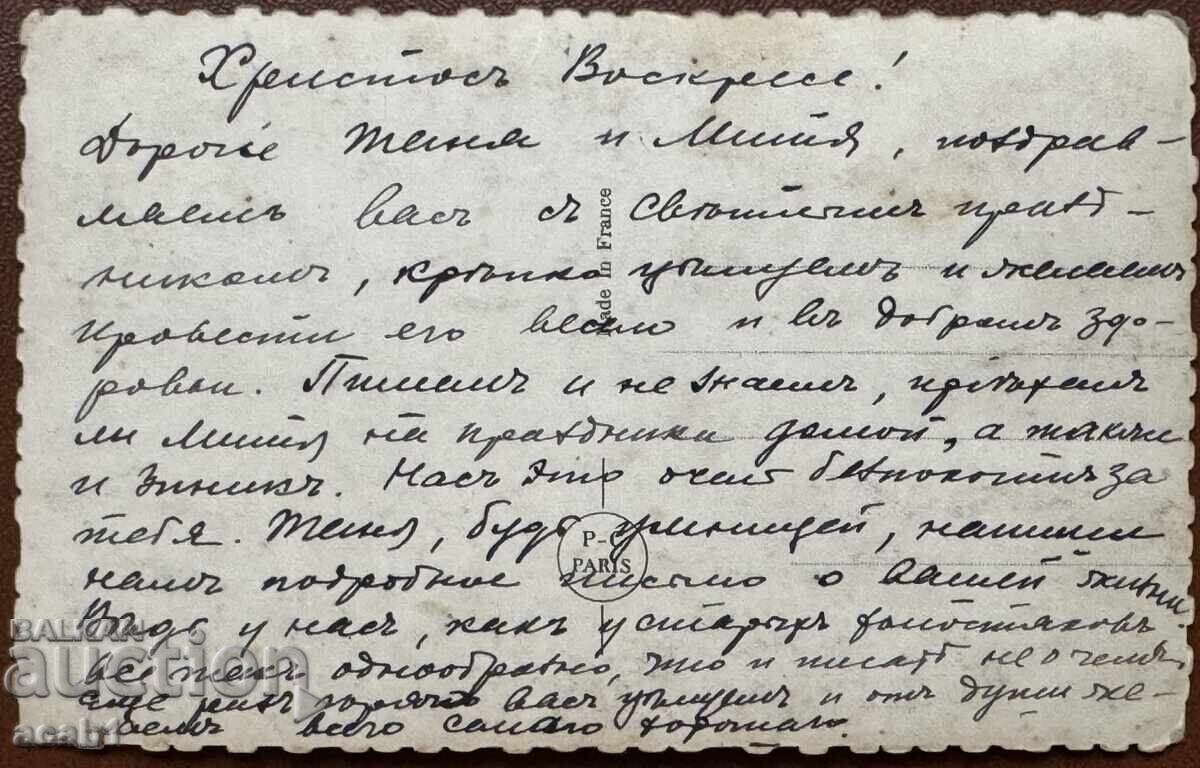 Христосъ Воскресе!
Дорогіе Таня и Митя, поздрав-
ляемъ васъ съ Свѣтлымъ празд-
никомъ, крѣпко цѣлуемъ и желаемъ
провести его весело и въ добромъ здо-
ровьи. Пишемъ и не знаемъ, пріѣхалъ
ли Митя на праздники домой, а также
и Эникъ. Насъ это очень безпокоитъ за
тебя. Таня, будь умницей, напиши
намъ подробное письмо о вашей жизни.
Вѣдь у насъ, какъ у старыхъ холостяковъ
все такъ однообразно, что и писать не о чемъ.
Еще разъ горячо васъ цѣлуемъ и отъ души же-
лаемъ всего самаго хорошаго.
Made in France
P-C
PARIS
BALKAN
auction
acab1